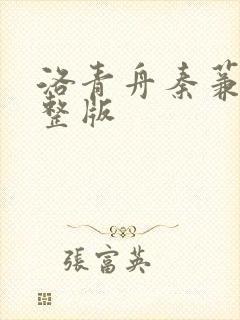 洛青舟秦蒹
整版
張富英